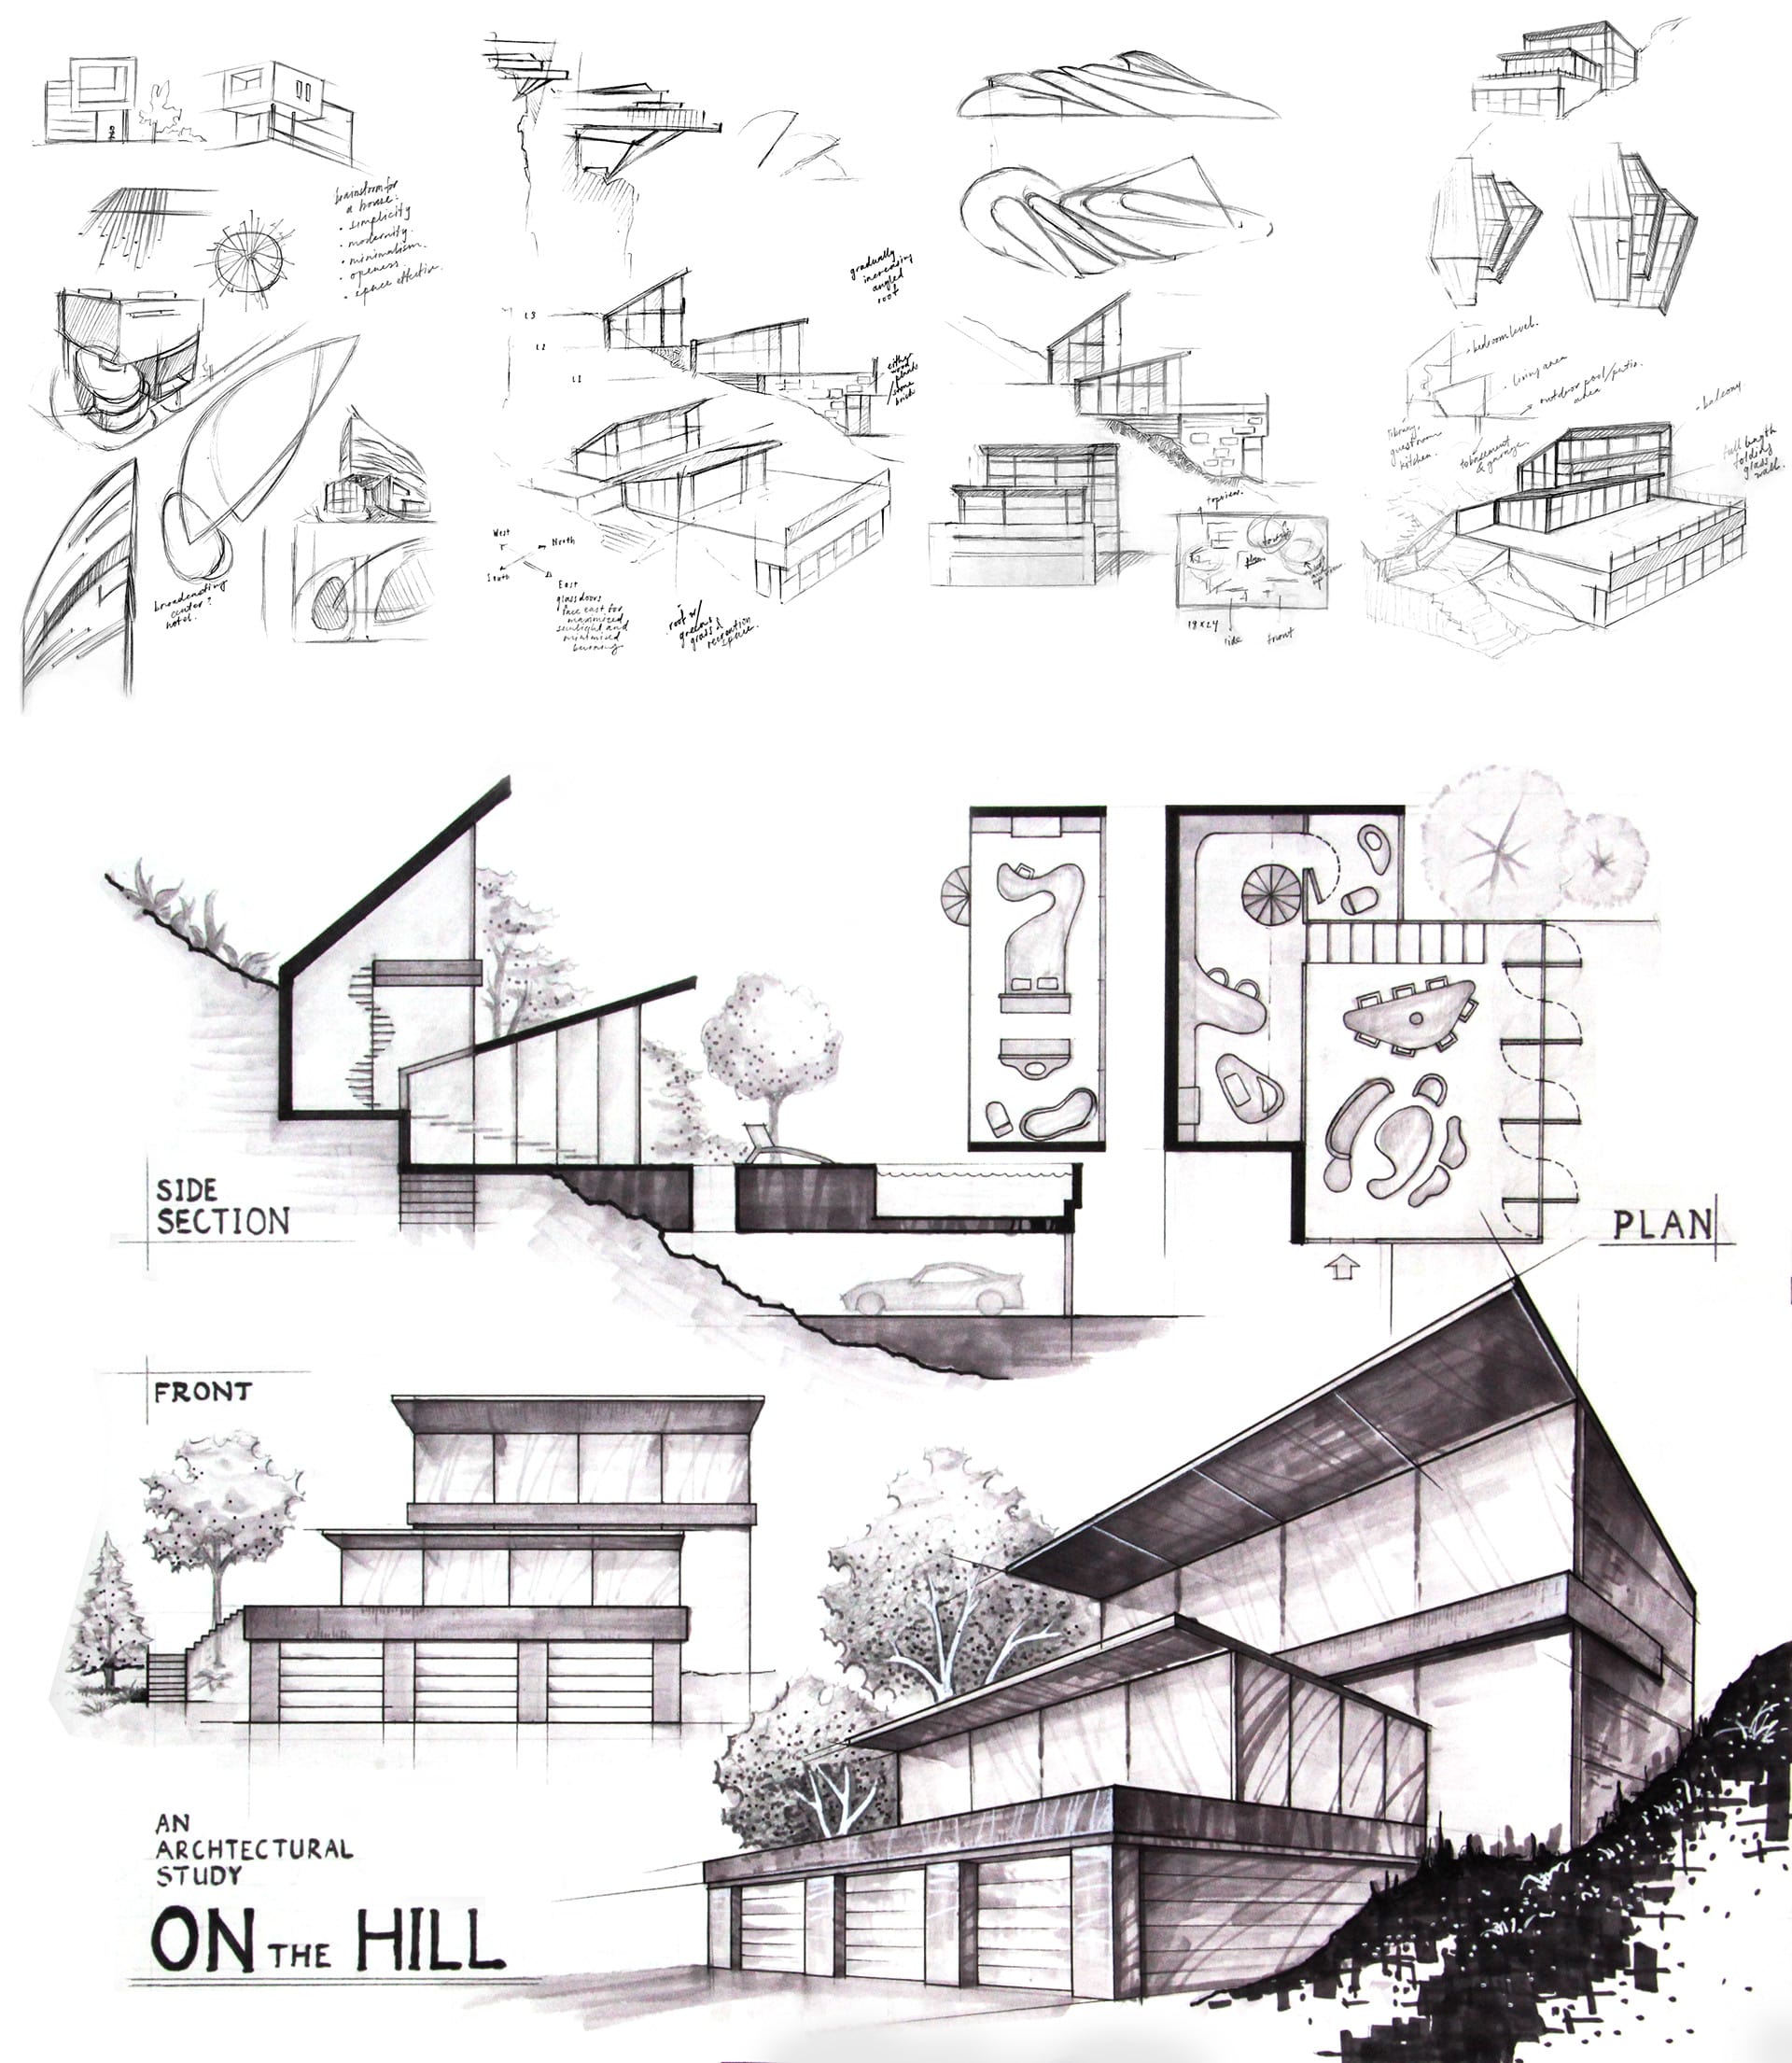 brainstorm for
a house:
• simplicity
• modernity.
• minimalism.
• openess.
• space effective.
broadcasting
center?
hotel.
gradually
increasing
angled
roof
L3
L2
L1
either
wood
planks
/stone
bricks
West
North
South
East
glass doors
face east for
maximized
sunlight and
minimized
burning
roof w/
greens
grass &
recreation
space.
topview.
plan
18x24
side
front
• bedroom level.
• living area
outdoor pool/patio.
area
library,
guestroom
kitchen.
to basement
& garage.
• balcony
full length
folding
glass
wall.
SIDE
SECTION
PLAN
FRONT
AN
ARCHTECTURAL
STUDY
ON THE HILL